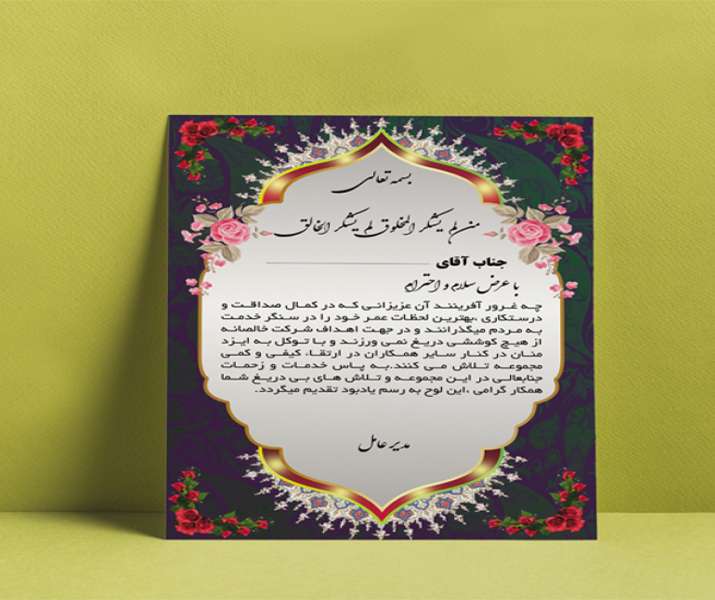 بسمه تعالی
من لم یشکر المخلوق لم یشکر الخالق
جناب آقای
با عرض سلام و احترام
چه غرور آفرینند آن عزیزانی که در کمال صداقت و
درستکاری ،بهترین لحظات عمر خود را در سنگر خدمت
به مردم میگذرانند و در جهت اهداف شرکت خالصانه
از هیچ کوششی دریغ نمی ورزند و با توکل به ایزد
منان در کنار سایر همکاران در ارتقاء کیفی و کمی
مجموعه تلاش می کنند.به پاس خدمات و زحمات
جنابعالی در این مجموعه و تلاش های بی دریغ شما
همکار گرامی ،این لوح به رسم یادبود تقدیم میگردد.
مدیر عامل